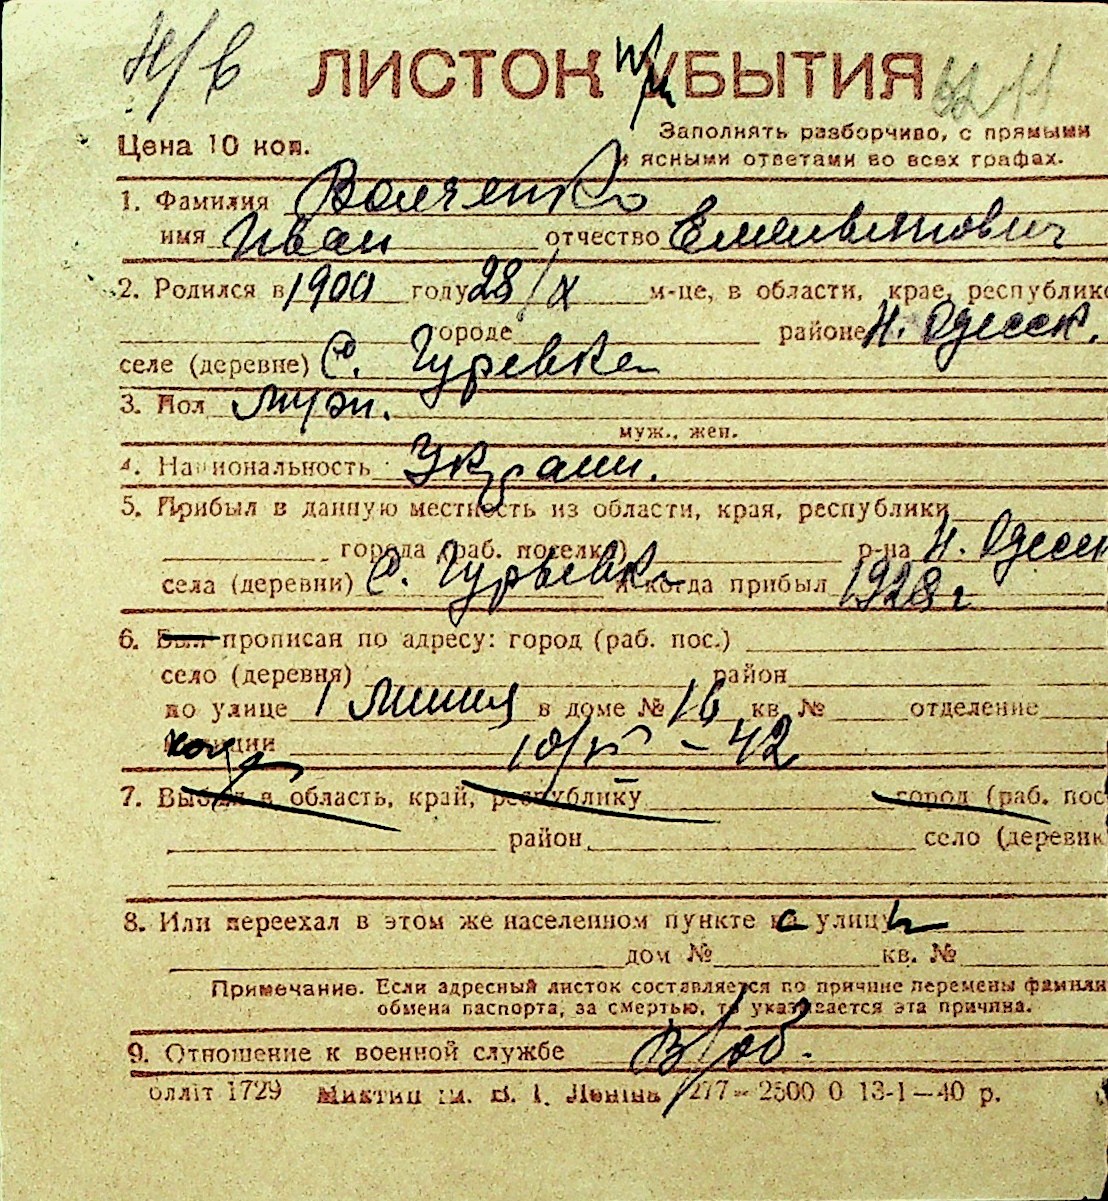 Н/в ЛИСТОК УБЫТИЯ
Цена 10 коп. Заполнять разборчиво, с прямыми
и ясными ответами во всех графах.
1. Фамилия Волченко
имя Иван отчество Емельянович
2. Родился в 1900 году 28/X м-це, в области, крае, республике
городе районе Н. Одесск.
селе (деревне) С. Гуревка
3. Пол муж.
муж., жен.
4. Национальность Украин.
5. Прибыл в данную местность из области, края, республики
города (раб. поселка) р-на Н. Одесск
села (деревни) С. Гурьевка и когда прибыл 1928 г
6. Был прописан по адресу: город (раб. пос.)
село (деревня) район
по улице 1 линия в доме № 16 кв. № отделение
милиции 10/VI - 42
7. Выбыл в область, край, республику город (раб. пос
район село (деревня
8. Или переехал в этом же населенном пункте на улицу
дом № кв. №
Примечание. Если адресный листок составляется по причине перемены фамили
обмена паспорта, за смертью, то указывается эта причина.
9. Отношение к военной службе в/об.
блліт 1729 Миктип ім. В. І. Леніна 277—2500 0 13-1—40 р.